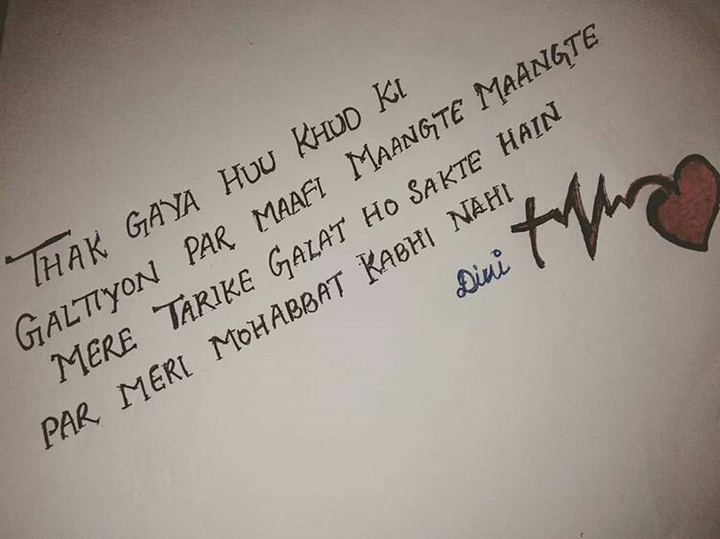 THAK GAYA HUU KHUD KI
GALTIYON PAR MAAFI MAANGTE MAANGTE
MERE TARIKE GALAT HO SAKTE HAIN
PAR MERI MOHABBAT KABHI NAHI
Dini